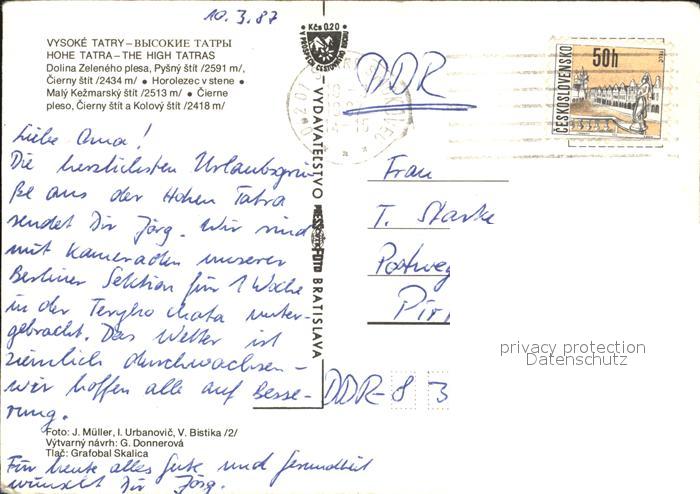 10.3.87
VYSOKÉ TATRY – ВЫСОКИЕ ТАТРЫ
HOHE TATRA – THE HIGH TATRAS
Dolina Zeleného plesa, Pyšný štít /2591 m/,
Čierny štít /2434 m/ • Horolezec v stene •
Malý Kežmarský štít /2513 m/ • Čierne
pleso, Čierny štít a Kolový štít /2418 m/
Liebe Oma!
Die herzlichsten Urlaubsgrü-
ße aus der Hohen Tatra
sendet Dir Jörg. Wir sind
mit Kameraden unserer
Berliner Sektion für 1 Woche
in der Teryho chata unter-
gebracht. Das Wetter ist
ziemlich durchwachsen –
wir hoffen alle auf Besse-
rung.
Foto: J. Müller, I. Urbanovič, V. Bistika /2/
Výtvarný návrh: G. Donnerová
Tlač: Grafobal Skalica
Für heute alles Gute und Gesundheit
wünscht Dir Jörg.
Kčs 0.20
VYDAVATEĽSTVO
BRATISLAVA
DDR
ČESKOSLOVENSKO
50h
Frau
T. Starke
Postweg
Pir
DDR-8 3
privacy protection
Datenschutz